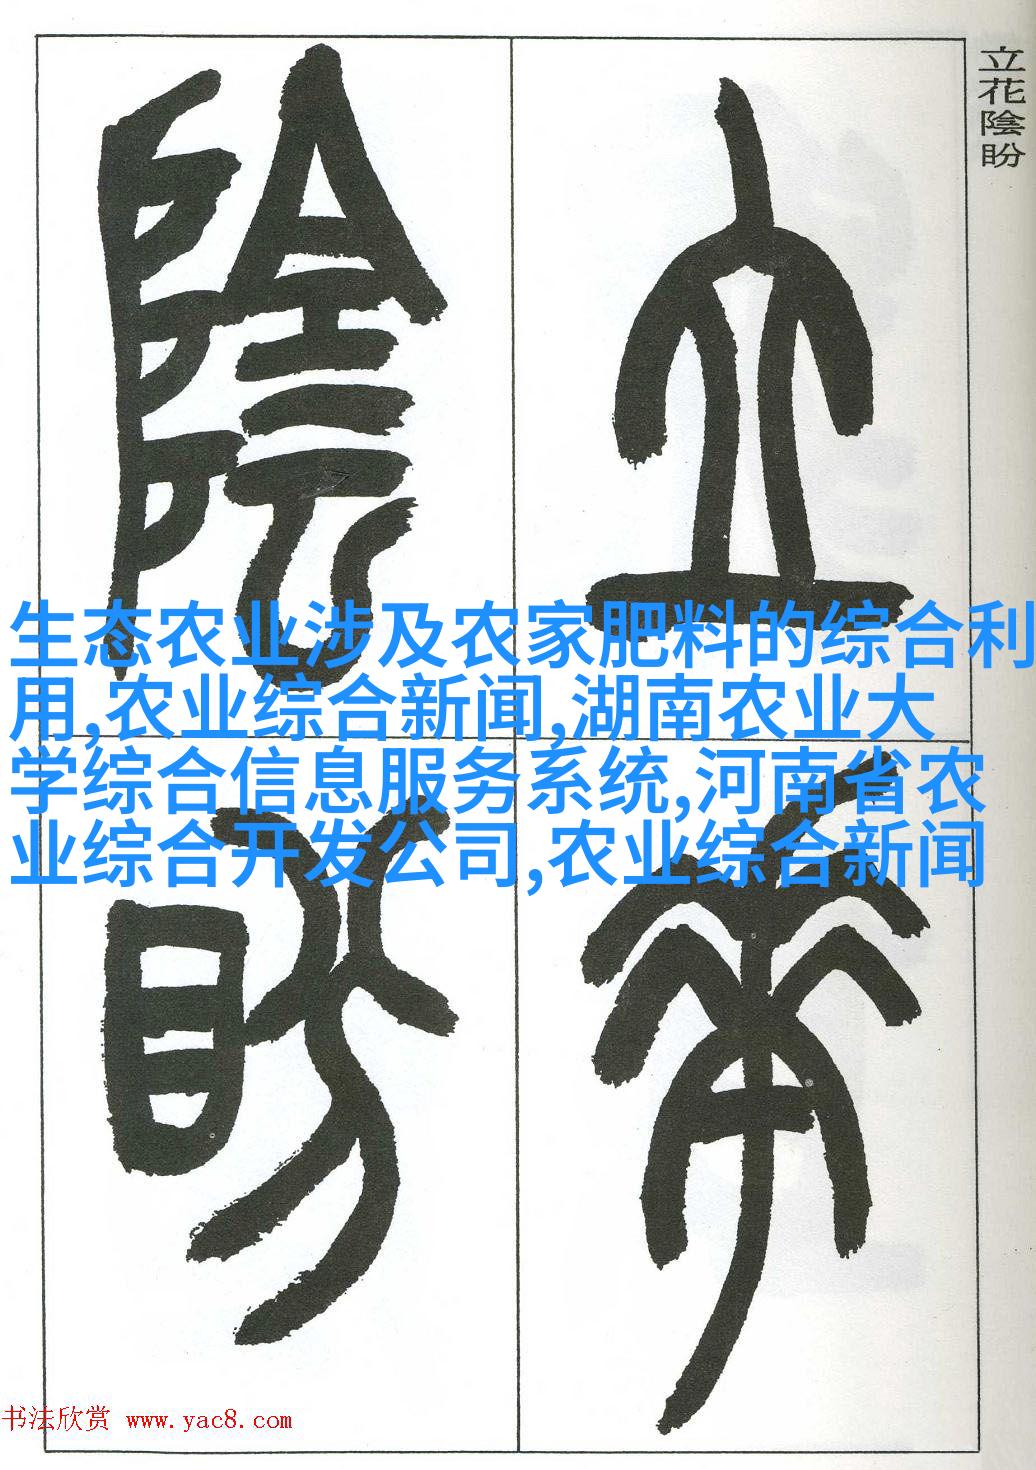 立花陰盼
立
花
陰
盼
生态农业涉及农家肥料的综合利
用,农业综合新闻,湖南农业大
学综合信息服务系统,河南省农
业综合开发公司,农业综合新闻
书法欣赏 www.yac8.com